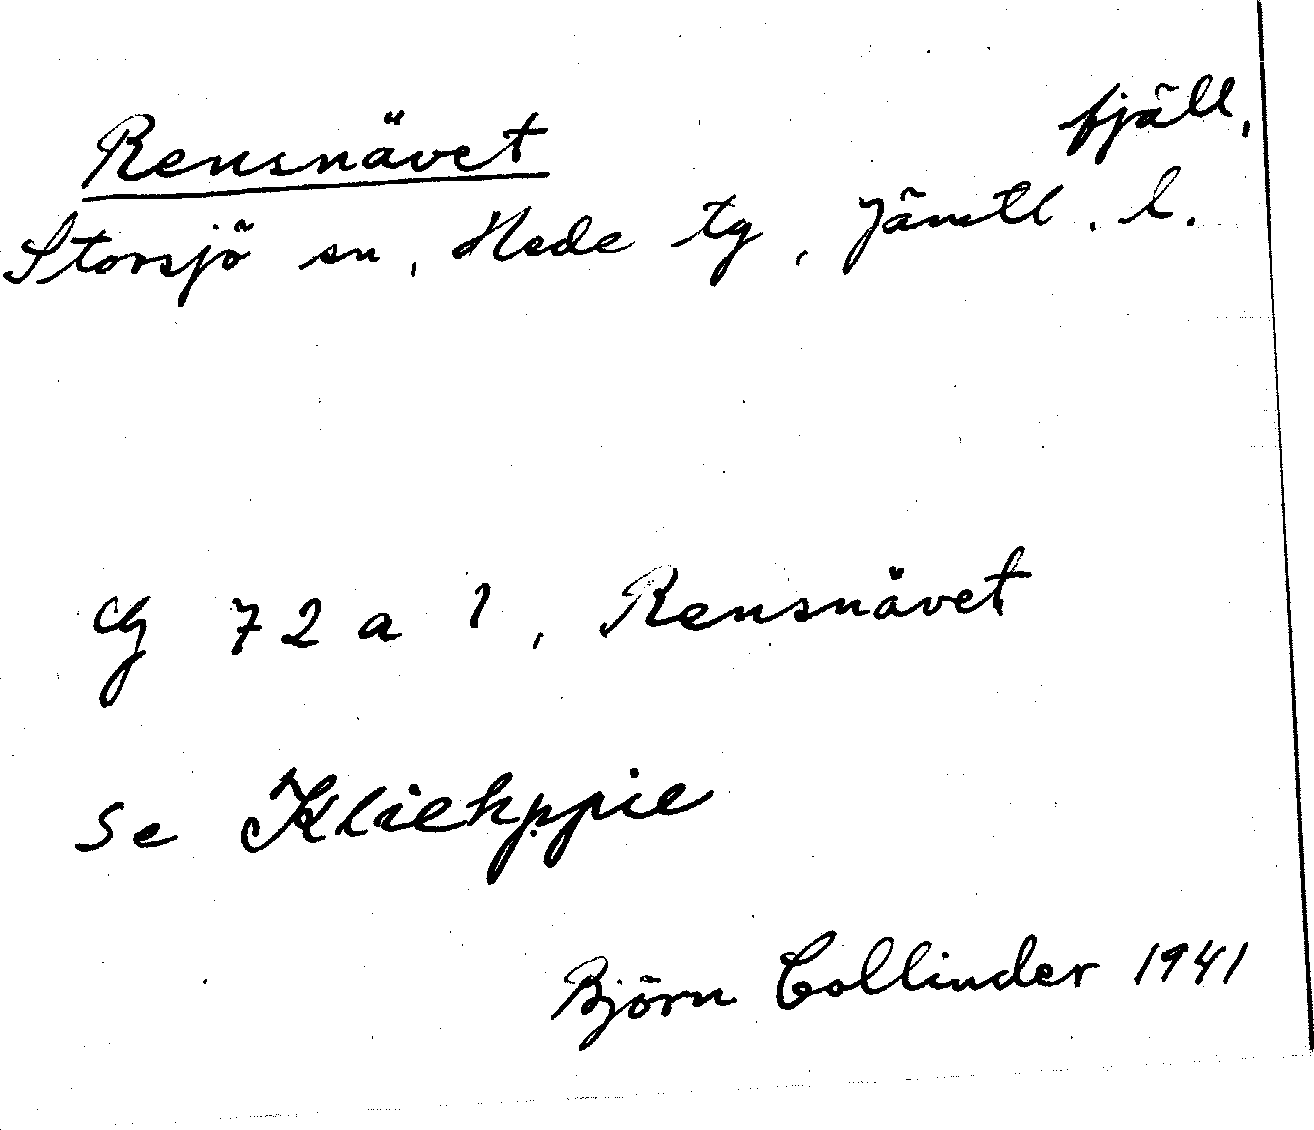 Rensnåvet fjäll,
Storsjö sn, Hede tg, Jämtl. l.
Cg 72 a 1, Rensnåvet
se Kliehppie
Björn Collinder 1941